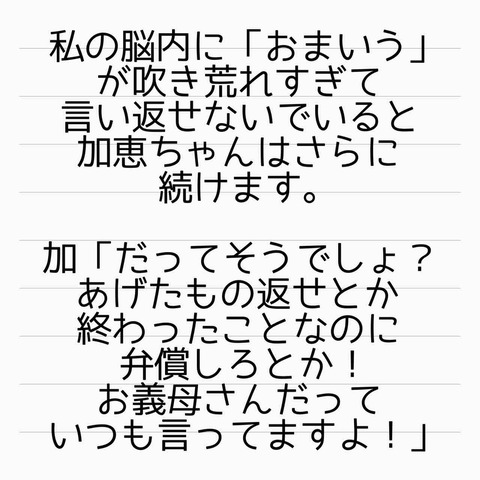 私の脳内に「おまいう」
が吹き荒れすぎて
言い返せないでいると
加恵ちゃんはさらに
続けます。
加「だってそうでしょ？
あげたもの返せとか
終わったことなのに
弁償しろとか！
お義母さんだって
いつも言ってますよ！」